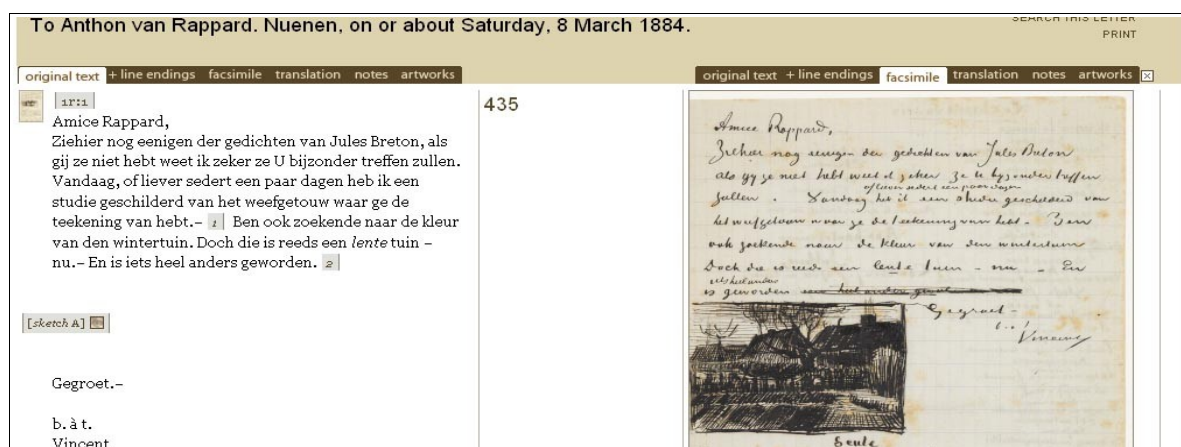 To Anthon van Rappard. Nuenen, on or about Saturday, 8 March 1884.
SEARCH THIS LETTER
PRINT
original text + line endings facsimile translation notes artworks
original text + line endings facsimile translation notes artworks
1r:1
Amice Rappard,
Ziehier nog eenigen der gedichten van Jules Breton, als
gij ze niet hebt weet ik zeker ze U bijzonder treffen zullen.
Vandaag, of liever sedert een paar dagen heb ik een
studie geschilderd van het weefgetouw waar ge de
teekening van hebt.– 1 Ben ook zoekende naar de kleur
van den wintertuin. Doch die is reeds een lente tuin –
nu.– En is iets heel anders geworden. 2
[sketch A]
Gegroet.–
b. à t.
Vincent
435
Amice Rappard,
Ziehier nog eenigen der gedichten van Jules Breton
als gij ze niet hebt weet ik zeker ze U bijzonder treffen
of liever sedert een paar dagen
zullen. Vandaag heb ik een studie geschilderd van
het weefgetouw waar ge de teekening van hebt – Ben
ook zoekende naar de kleur van den wintertuin
Doch die is reeds een lente tuin – nu – En
iets heel anders
is geworden een heel ander geval
Gegroet –
b. à t.
Vincent